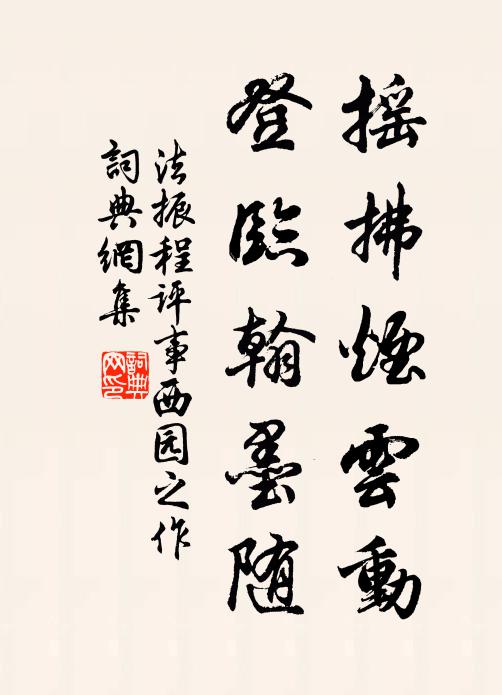 摇拂煙雲動
登臨翰墨随
法振程评事西园之作
詞典網集
詞典网印